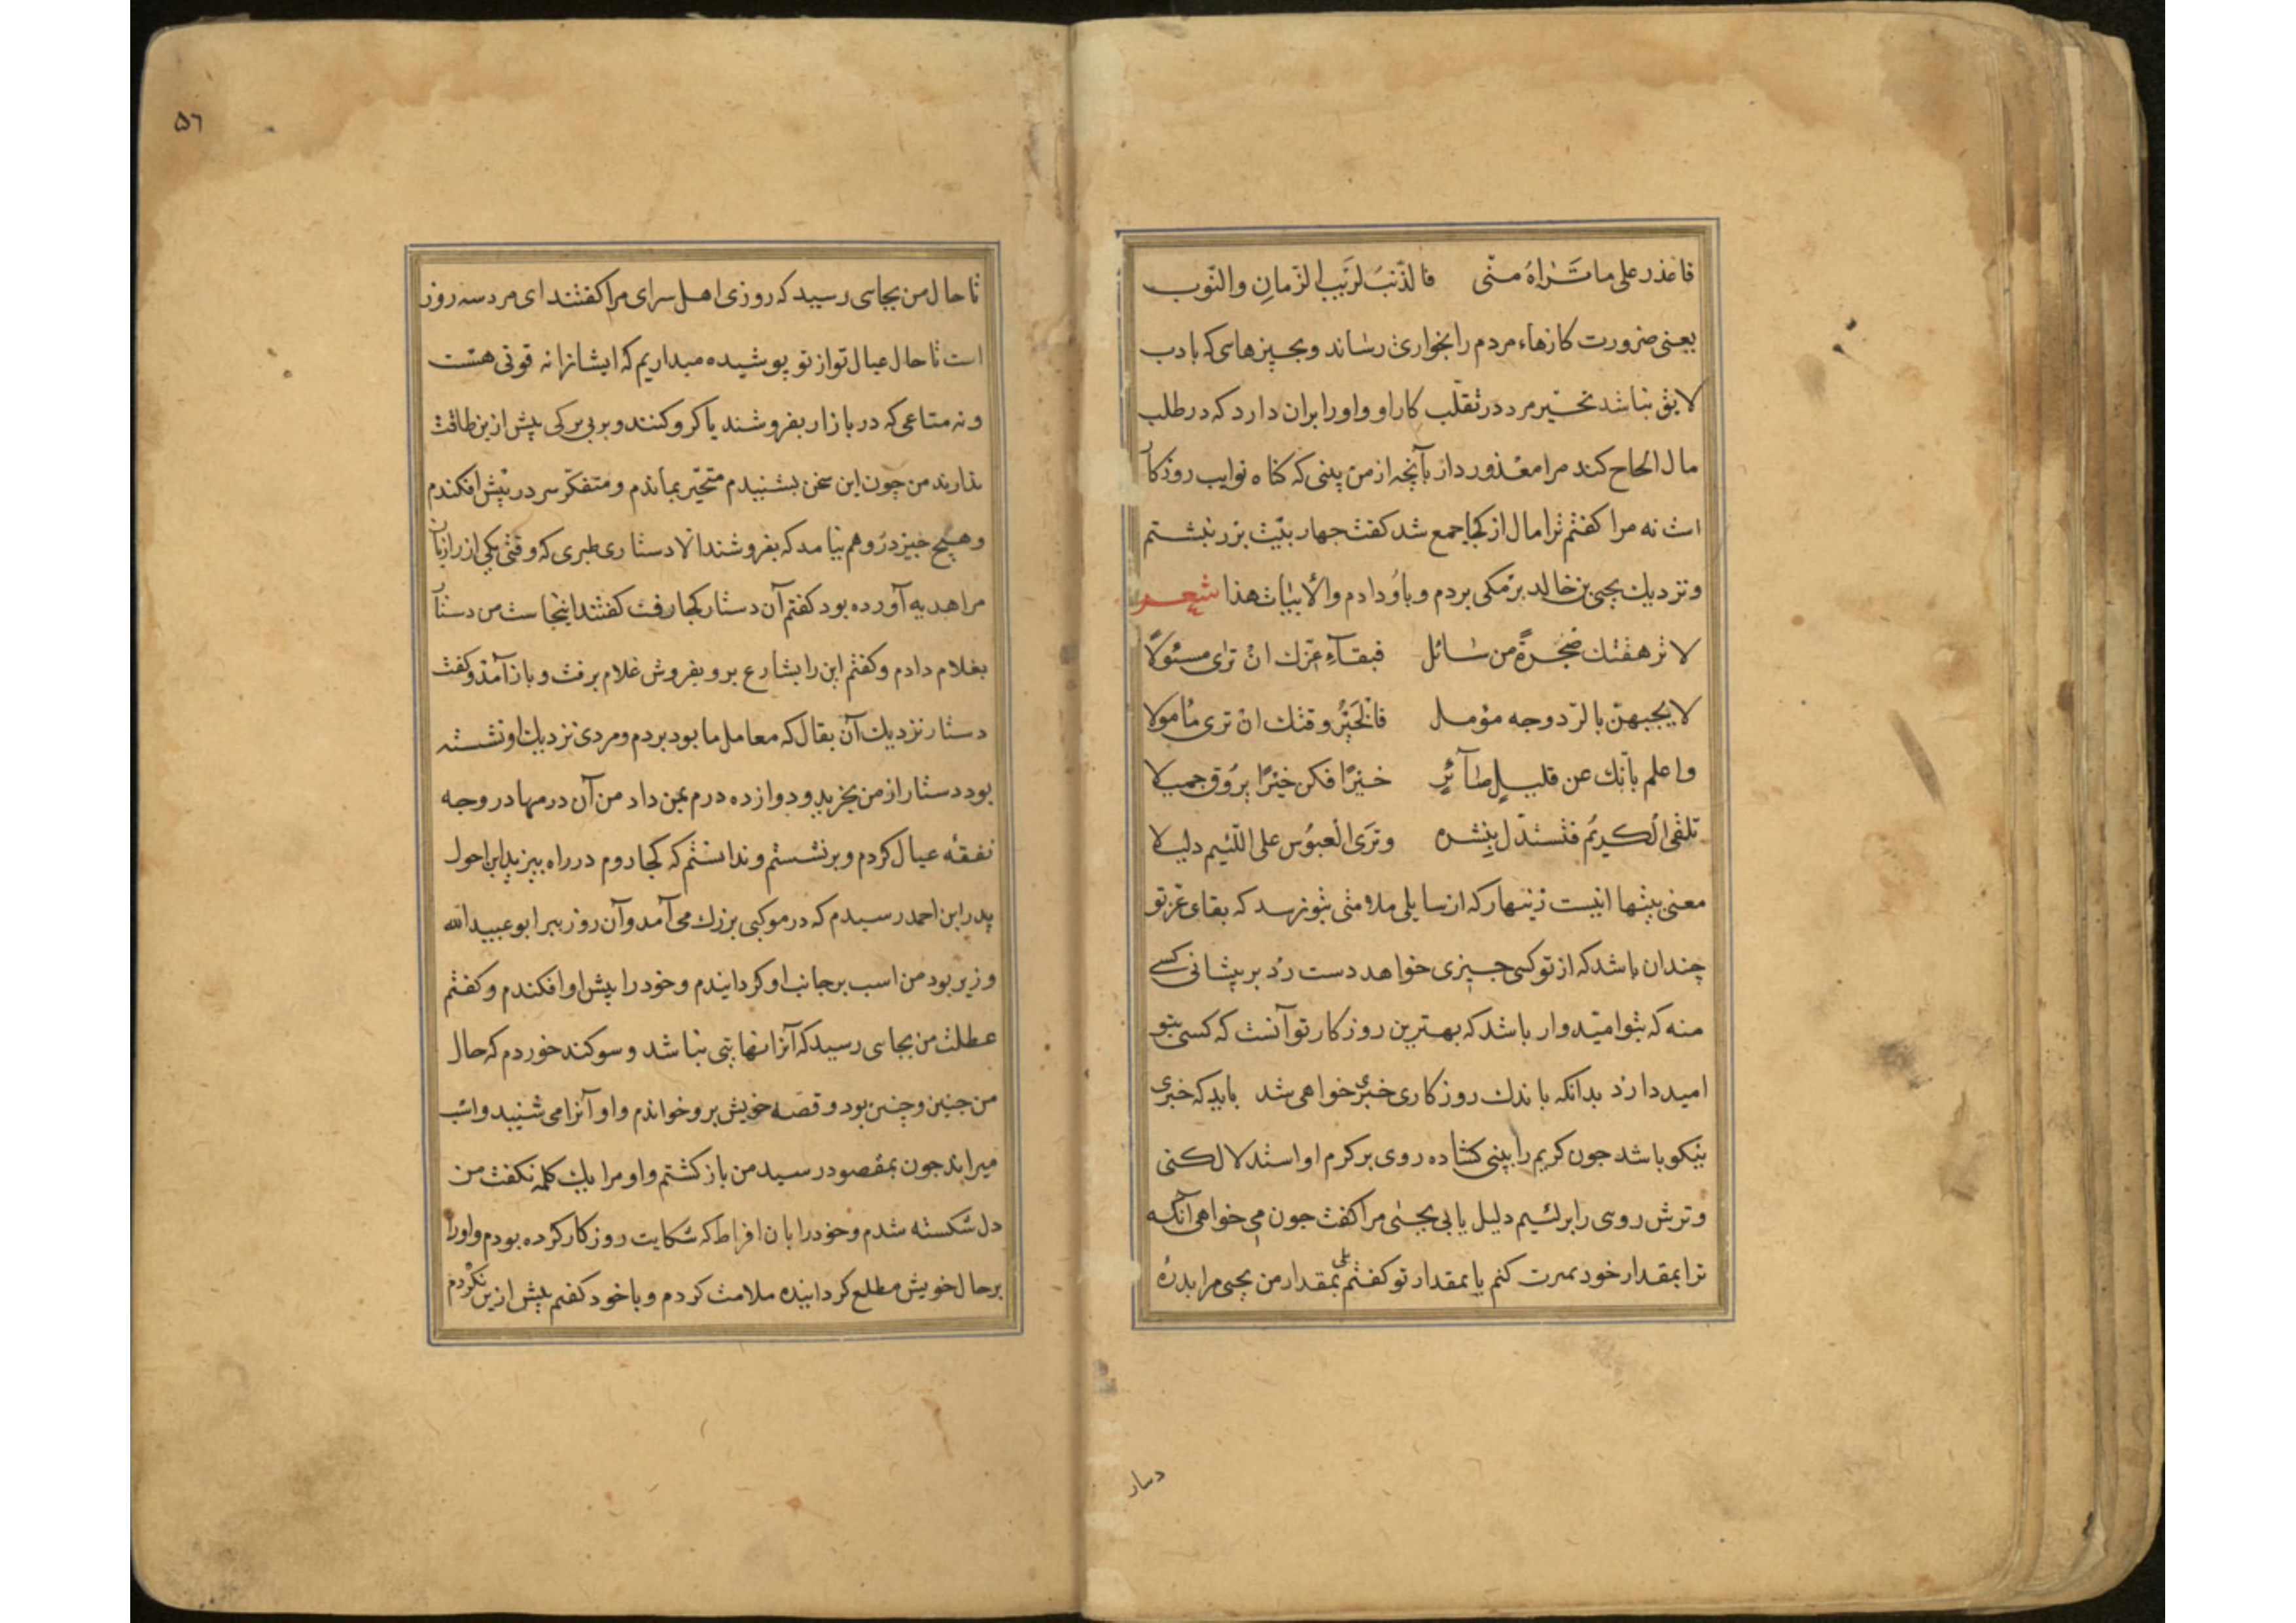 فاعذر علی ما تَراهُ منّی فالذّنبُ لرَیبِ الزّمانِ والنّوب
یعنی ضرورت کارهاء مردم را بخواری رساند و بچیزهاسی که بادب
لایق نباشد تحیّر مرد در تقلّب کار او و او را بران دارد که در طلب
مال الحاح کند مرا معذور دار بآنچه از من بینی که کناه نوایب روزکار
است نه مرا کفتم ترا مال از کجا جمع شد کفت چهار بیت بزر نبشتم
و نزدیك یحیی بن خالد برمکی بردم و باو دادم والأبیات هذا شعر
لا ترهقنك ضجرةً من سائل فبقآءِ عزّك انْ تری مسئولًا
لا یجبهنّ بالرّد وجه مؤمل فالخیرُ وقتك انْ تری مأمولا
واعلم بأنّك عن قلیلٍ صآئرٌ خبرًا فکن خبرًا یروق جمیلا
تلقی الکریم فتستدل ببشره وتری العبوس علی اللئیم دلیلا
معنی بیتها اینست زینهار که از سایلی ملامتی بتو نرسد که بقای عز تو
چندان باشد که از تو کسی چیزی خواهد دست رد بر پیشانی کسے
منه که بتو امیدوار باشد که بهترین روزکار تو آنست که کسی بتو
امید دارد بدانکه باندك روزکاری خبری خواهی شد باید که خبری
نیکو باشد جون کریم را بینی کشاده روی بر کرم او استدلال کنی
و ترش روسی را بر لئیم دلیل یابی یحیی مرا کفت جون می خواهی آنکه
ترا بمقدار خود مبرت کنم یا بمقدار تو کفتم بلی بمقدار من یحیی مرا بدرهٔ
دینار
۵٦
تا حال من بجاسی رسید که روزی اهل سرای مرا کفتند ای مرد سه روز
است تا حال عیال تو از تو پوشیده میداریم که ایشانرا نه قوتی هست
و نه متاعی که در بازار بفروشند یا کرو کنند و بر بی برکی بیش ازین طاقت
ندارند من چون این سخن بشنیدم متحیّر بماندم و متفکّر سر در پیش افکندم
و هیچ چیز در وهم نیامد که بفروشند الا دستاری طبری که وقتی یکی از رازیان
مرا هدیه آورده بود کفتم آن دستار کجا رفت کفتند اینجاست من دستار
بغلام دادم و کفتم این را بشارع بر و بفروش غلام برفت و باز آمد و کفت
دستار نزدیك آن بقال که معامل ما بود بردم و مردی نزدیك او نشسته
بود دستار از من بخرید و دوازده درم بمن داد من آن درمها در وجه
نفقهٔ عیال کردم و برنشستم و ندانستم که کجا روم در راه بیزید ابن احول
پدر ابن احمد رسیدم که در موکبی بزرك می آمد و آن روز ببر ابو عبیدالله
وزیر بود من اسب بر جانب او کردانیدم و خود را پیش او افکندم و کفتم
عطلت من بجاسی رسید که آنرا نهایتی نباشد و سوکند خوردم که حال
من چنین و چنین بود و قصه خویش بر و خواندم و او آنرا می شنید و اسب
میراند جون بمقصود رسید من باز کشتم و او مرا یك کلمه نکفت من
دل شکسته شدم و خود را بان افراط که شکایت روزکار کرده بودم و او را
بر حال خویش مطلع کردانیده ملامت کردم و با خود کفتم بیش ازین نکردم